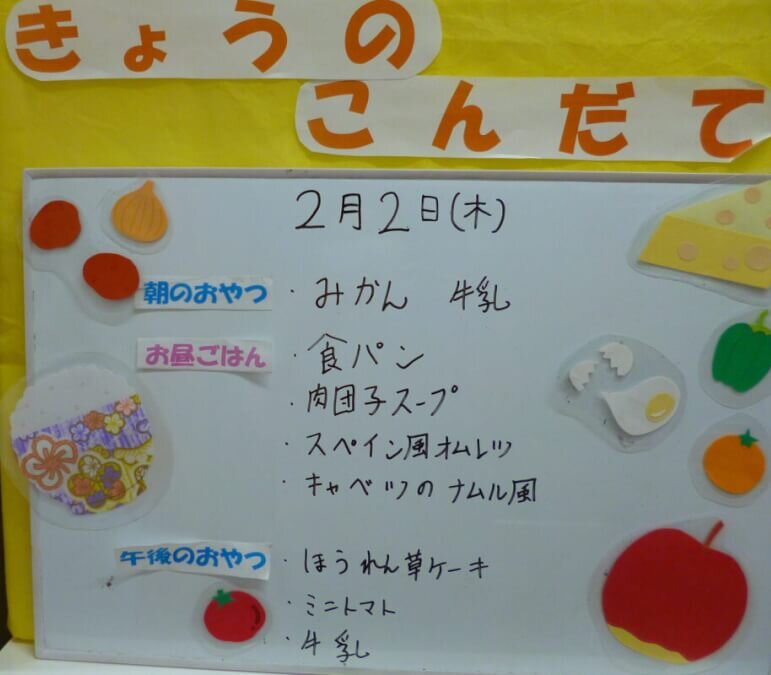 きょうの
こんだて
2月2日(木)
朝のおやつ ・みかん 牛乳
お昼ごはん ・食パン
・肉団子スープ
・スペイン風オムレツ
・キャベツのナムル風
午後のおやつ ・ほうれん草ケーキ
・ミニトマト
・牛乳